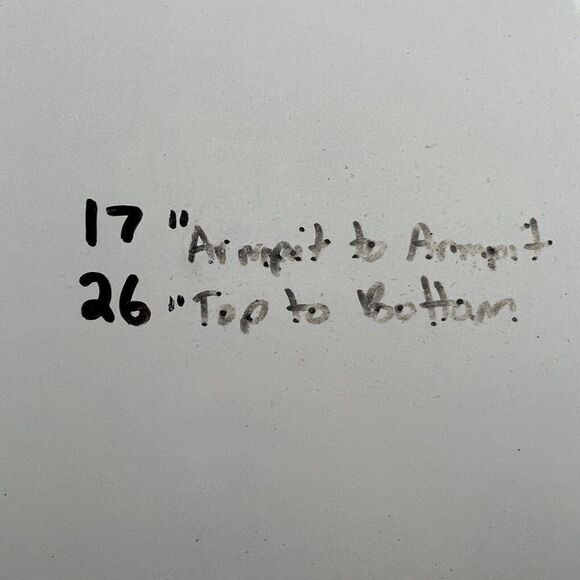 17 "Armpit to Armpit
26 "Top to Bottom